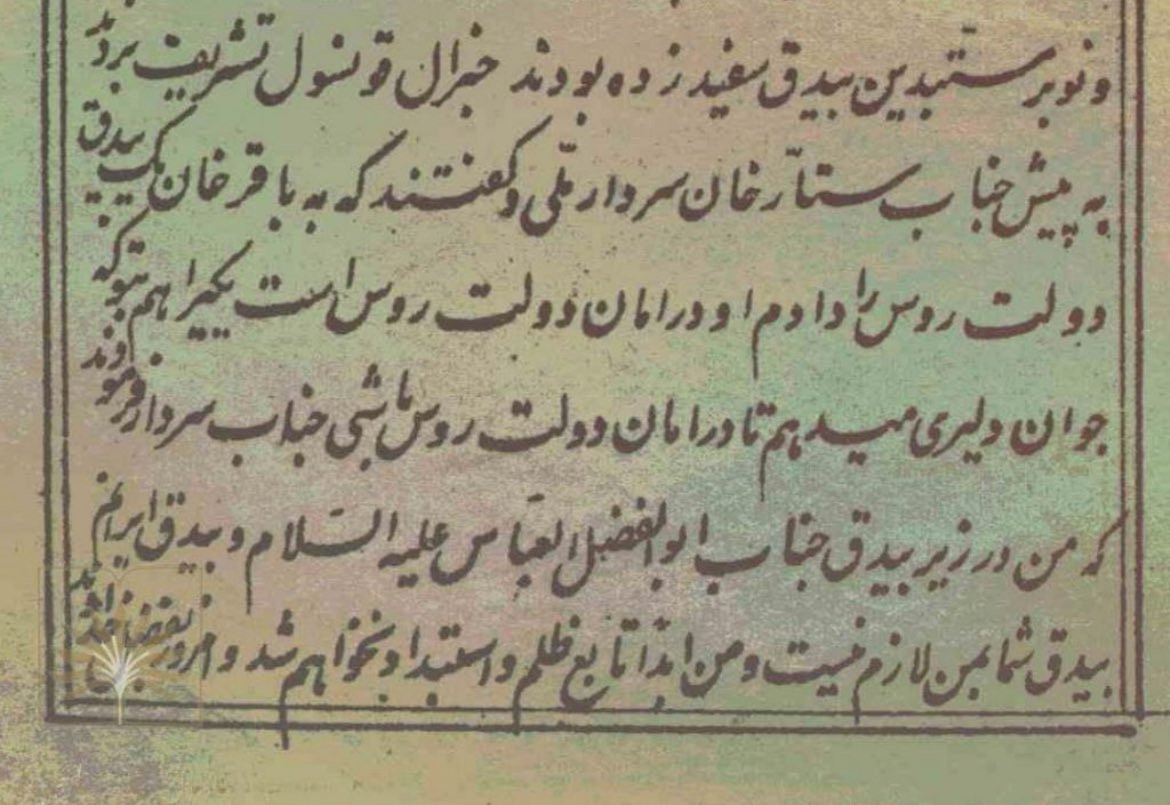 و نوبر مستبدین بیدق سفید زده بودند جنرال قونسول تشریف بردند
به پیش جناب ستارخان سردار ملّی و کفتند که به باقرخان یک بیدق
دولت روس را دادم او در امان دولت روس است یکیرا هم بتو که
جوان دلیری میدهم تا در امان دولت روس باشی جناب سردار فرمودند
که من در زیر بیدق جناب ابوالفضل العبّاس علیه السّلام و بیدق ایرانم
بیدق شما بمن لازم نیست و من ابداً تابع ظلم و استبداد نخواهم شد و امروز